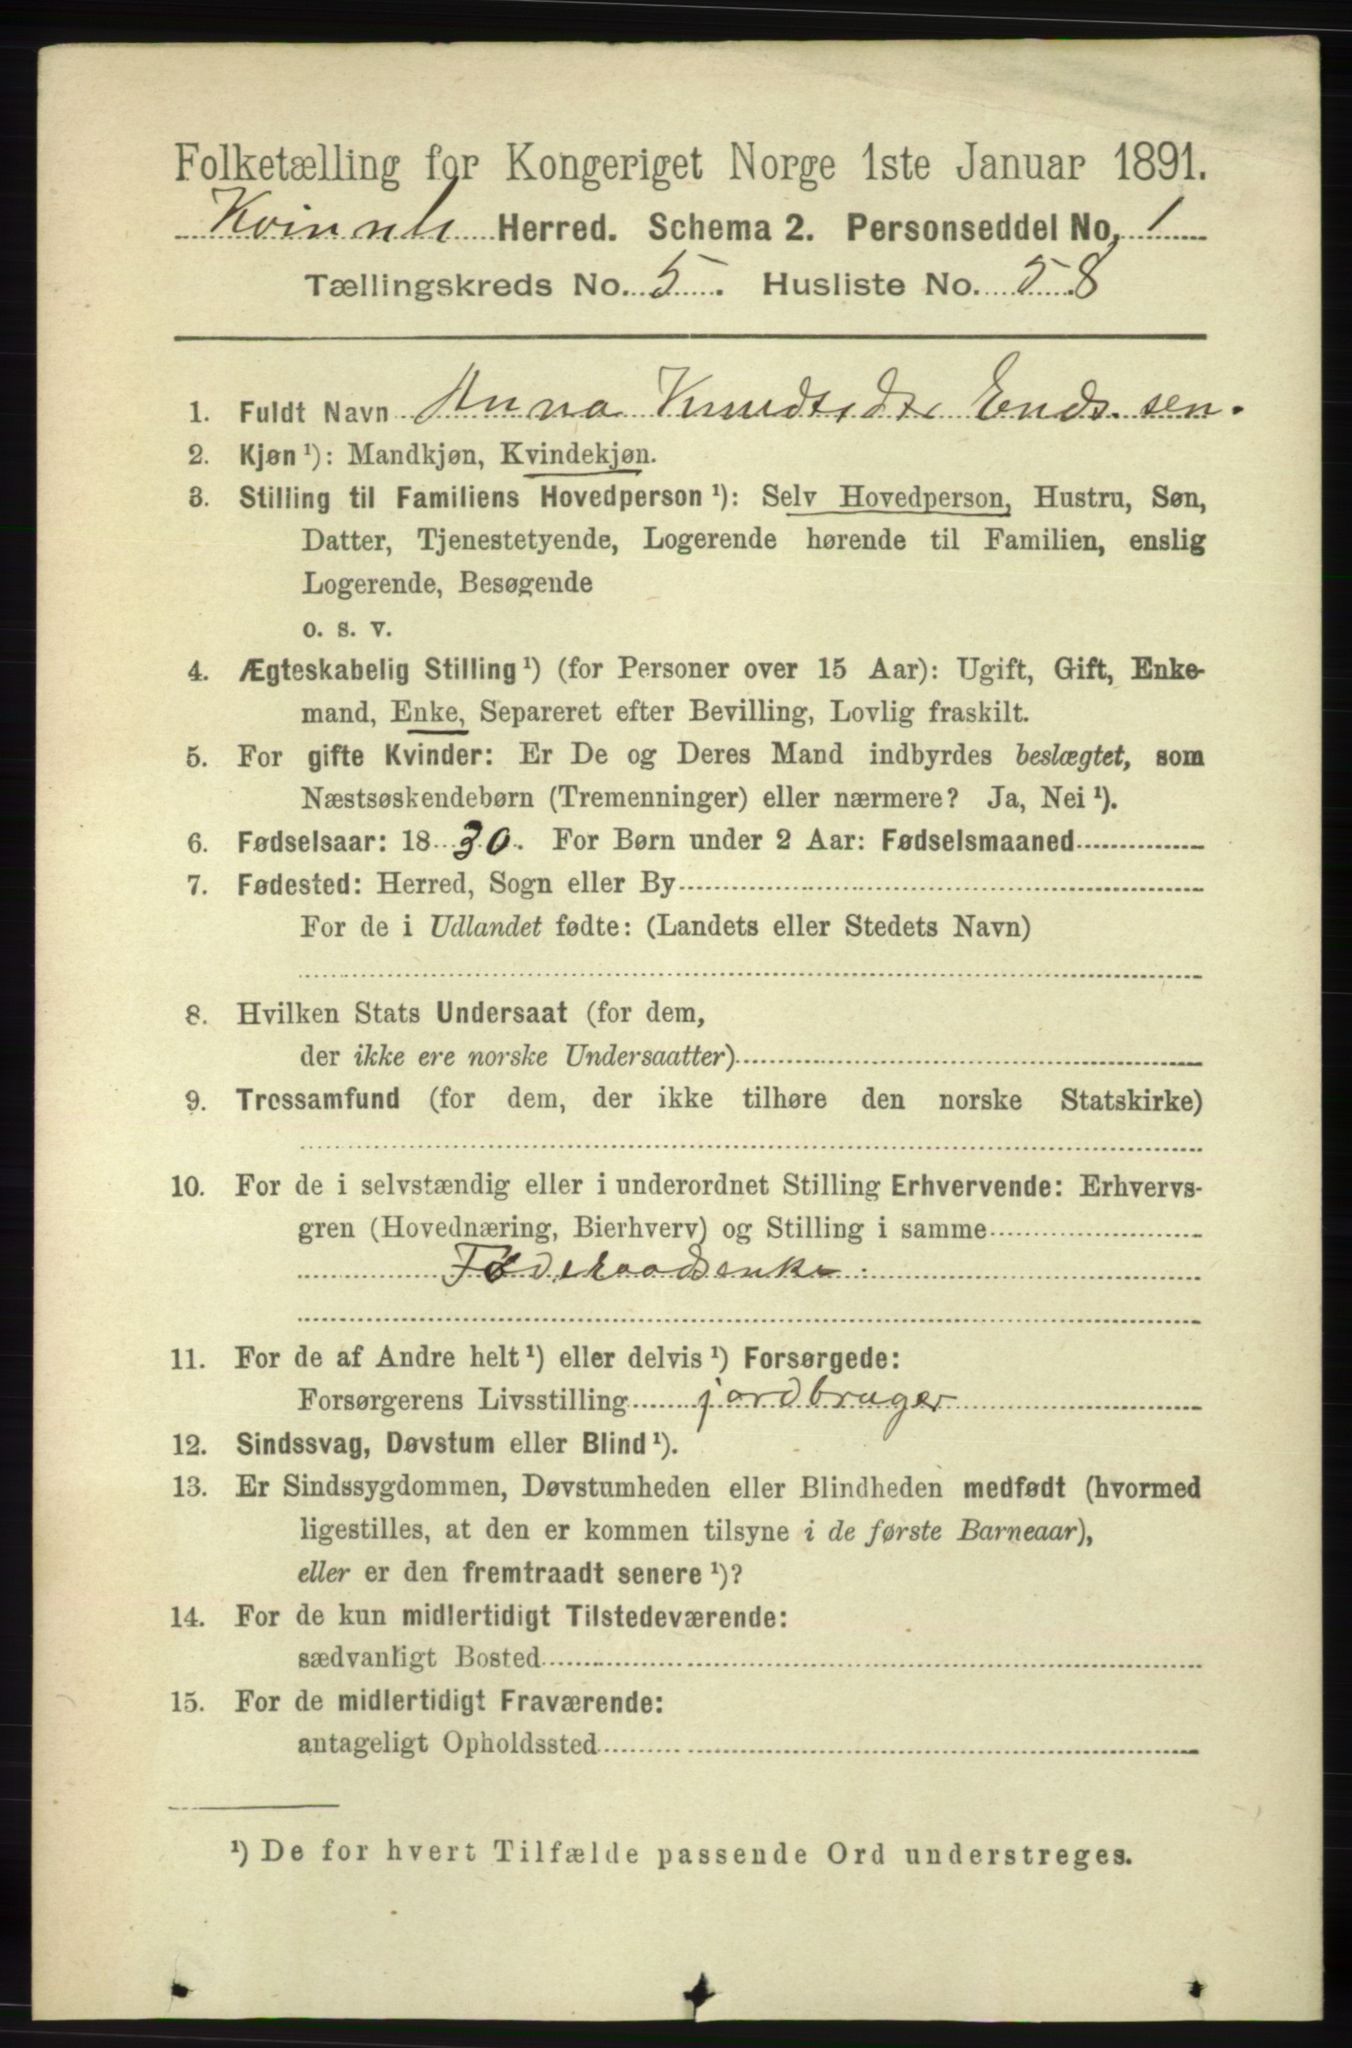 Folketælling for Kongeriget Norge 1ste Januar 1891.
Herred. Schema 2. Personseddel No. 1
Tællingskreds No. 5. Husliste No. 58
1. Fuldt Navn Anna Knudsdtr Endssen.
2. Kjøn ¹): Mandkjøn, Kvindekjøn.
3. Stilling til Familiens Hovedperson ¹): Selv Hovedperson, Hustru, Søn,
Datter, Tjenestetyende, Logerende hørende til Familien, enslig
Logerende, Besøgende
o. s. v.
4. Ægteskabelig Stilling ¹) (for Personer over 15 Aar): Ugift, Gift, Enke-
mand, Enke, Separeret efter Bevilling, Lovlig fraskilt.
5. For gifte Kvinder: Er De og Deres Mand indbyrdes beslægtet, som
Næstsøskendebørn (Tremenninger) eller nærmere? Ja, Nei ¹).
6. Fødselsaar: 1830. For Børn under 2 Aar: Fødselsmaaned
7. Fødested: Herred, Sogn eller By
For de i Udlandet fødte: (Landets eller Stedets Navn)
8. Hvilken Stats Undersaat (for dem,
der ikke ere norske Undersaatter)
9. Trossamfund (for dem, der ikke tilhøre den norske Statskirke)
10. For de i selvstændig eller i underordnet Stilling Erhvervende: Erhvervs-
gren (Hovednæring, Bierhverv) og Stilling i samme
Føderaadsenke
11. For de af Andre helt ¹) eller delvis ¹) Forsørgede:
Forsørgerens Livsstilling jordbruger
12. Sindssvag, Døvstum eller Blind ¹).
13. Er Sindssygdommen, Døvstumheden eller Blindheden medfødt (hvormed
ligestilles, at den er kommen tilsyne i de første Barneaar),
eller er den fremtraadt senere ¹)?
14. For de kun midlertidigt Tilstedeværende:
sædvanligt Bosted
15. For de midlertidigt Fraværende:
antageligt Opholdssted
¹) De for hvert Tilfælde passende Ord understreges.